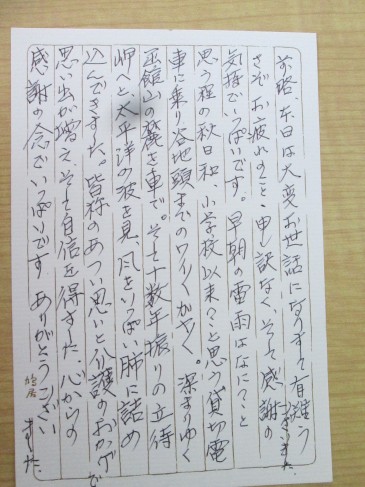 前略、本日は大変お世話になります有難う
ございました。
さぞお疲れのこと、申訳なく、そして感謝の
気持でいっぱいです。早朝の雷雨はなに?こと
思う程の秋日和、小学校以来?こと思う貸切電
車に乗り谷地頭までのワクワクかやく。深まりゆく
函館山の麓を車で。そして十数年振りの立待
岬へと、太平洋の波を見、風をいっぱい肺に詰め
込んできました。皆称のあつい思いと介護のおかげで
思い出が増え、そして自信を得ました、心からの
感謝の念でいっぱいです ありがとうござい
ました。